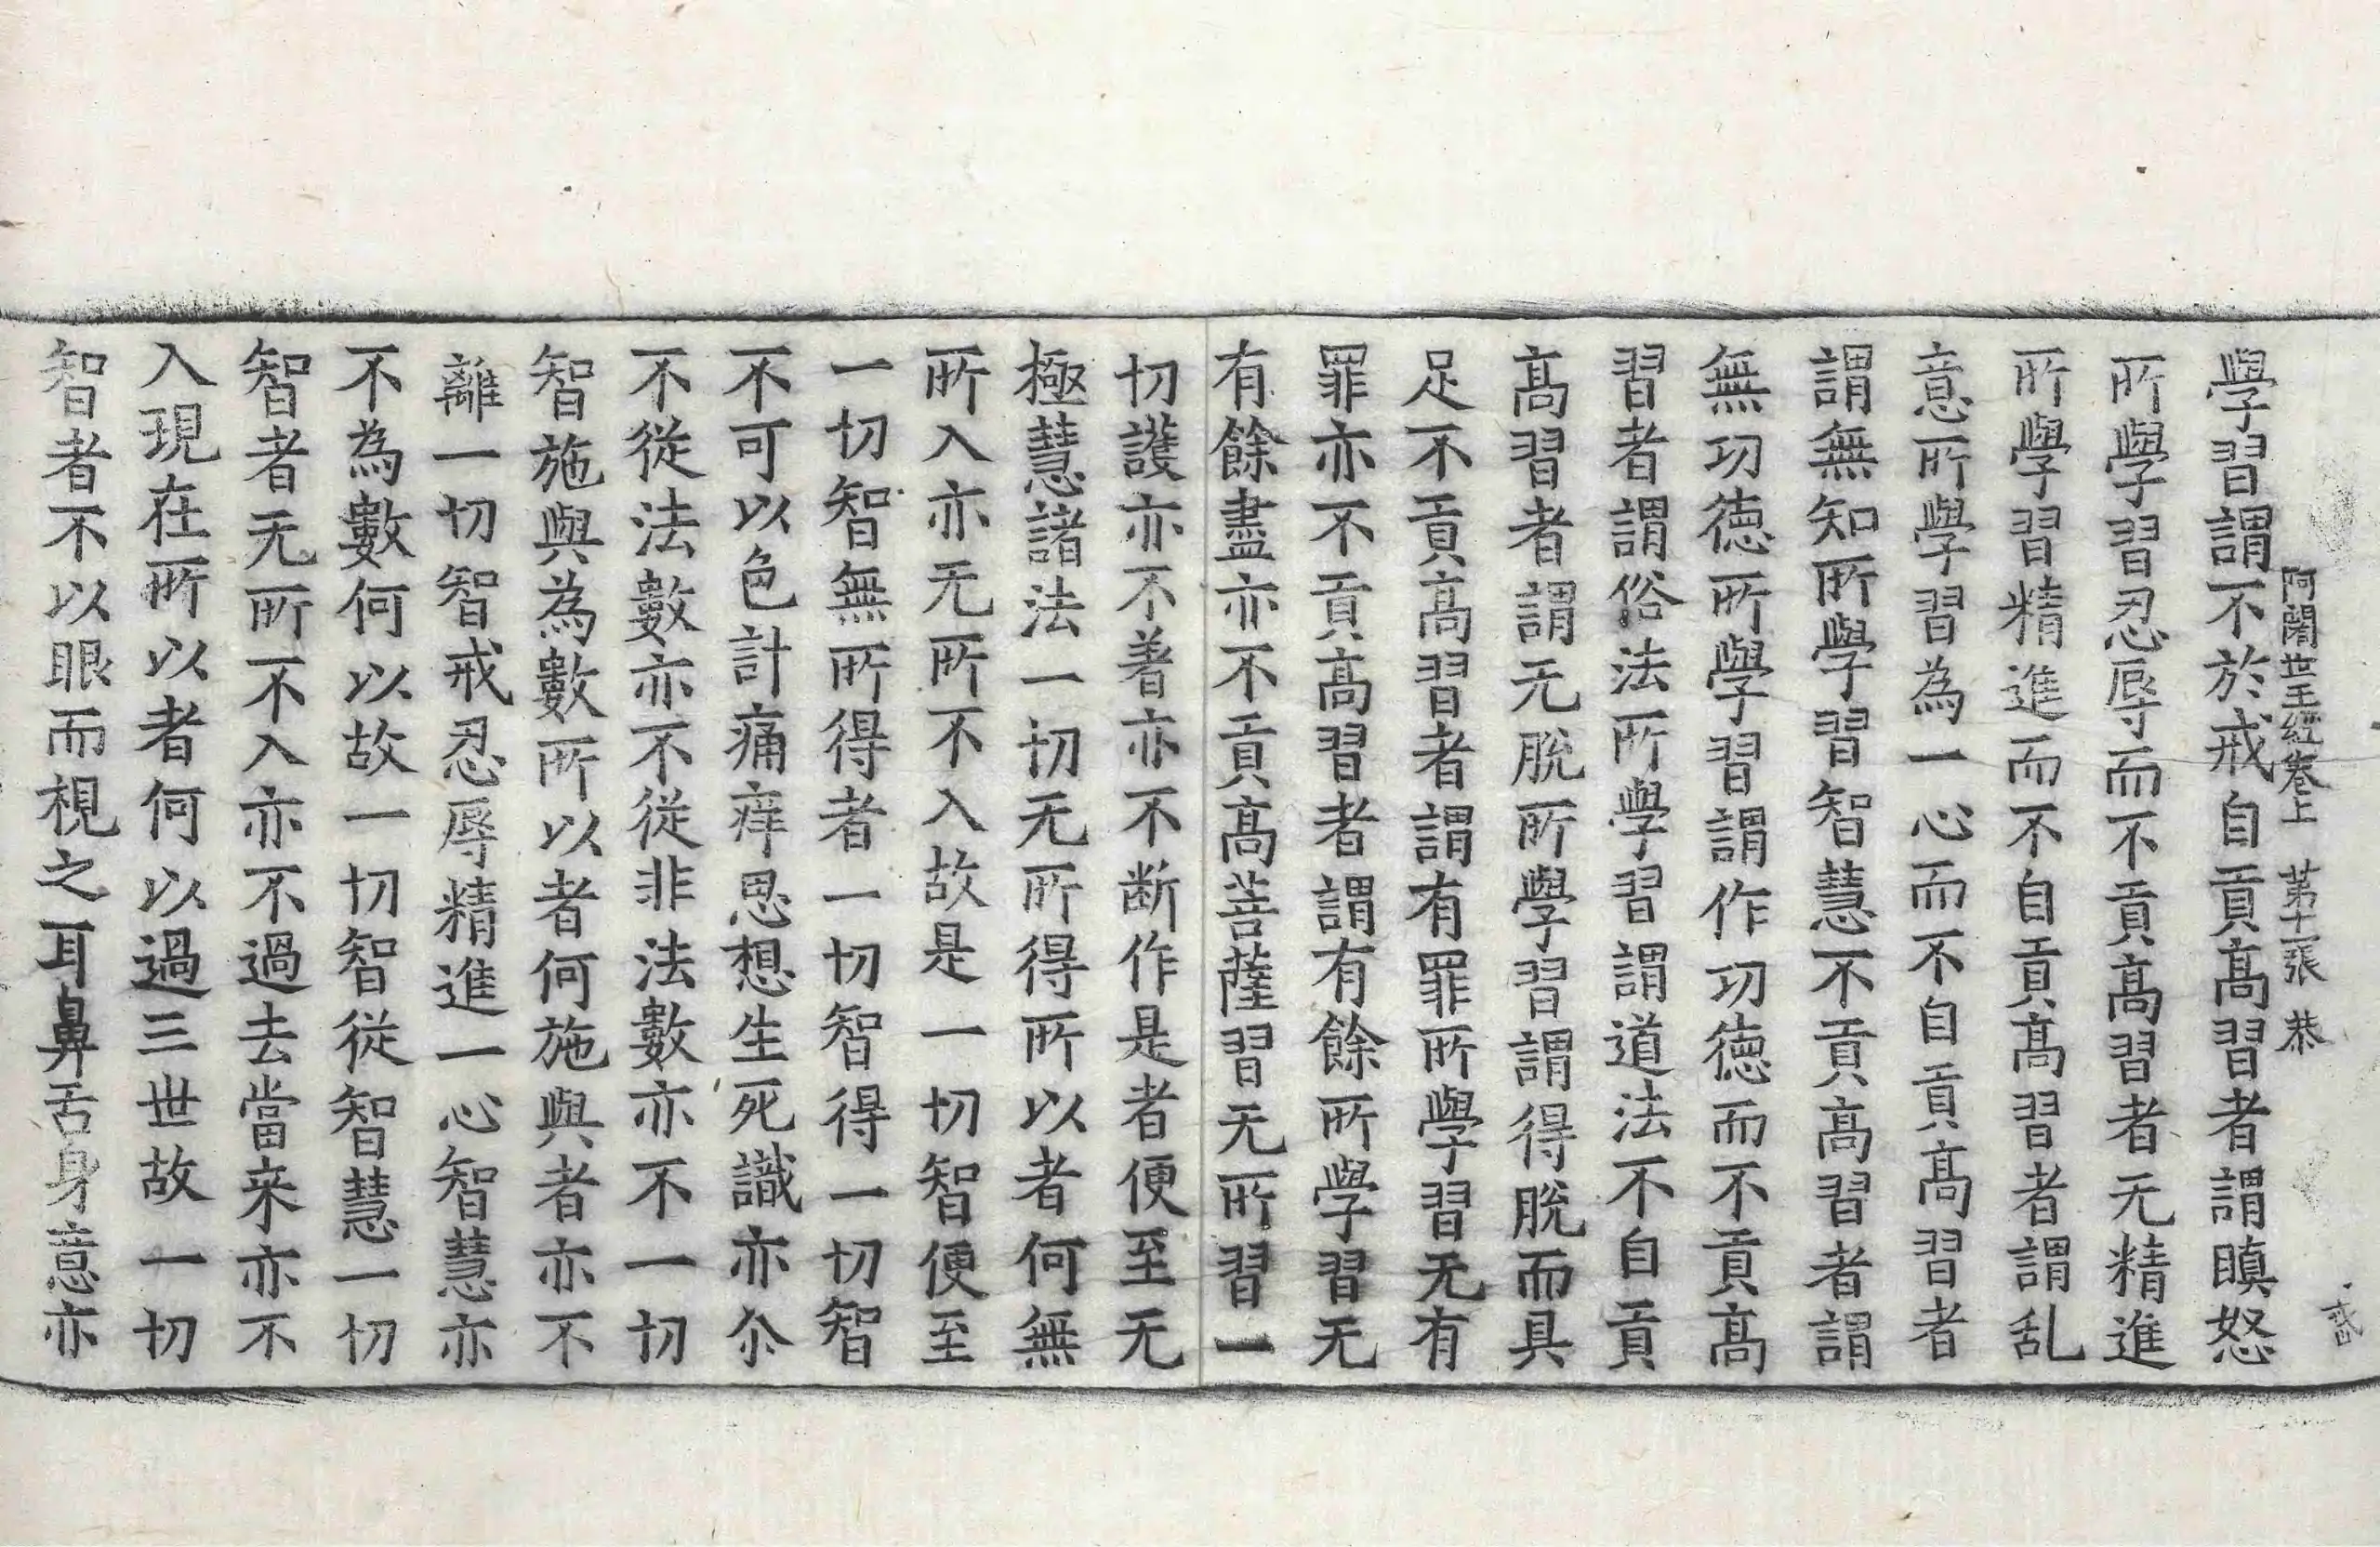 阿闍世王經卷上　第十一張　恭
學習謂不於戒自貢高習者謂瞋怒
所學習忍辱而不貢高習者无精進
所學習精進而不自貢高習者謂乱
意所學習為一心而不自貢高習者
謂無知所學習智慧不貢高習者謂
無功德所學習謂作功德而不貢高
習者謂俗法所學習謂道法不自貢
高習者謂无脫所學習謂得脫而具
足不貢高習者謂有罪所學習无有
罪亦不貢高習者謂有餘所學習无
有餘盡亦不貢高菩薩習无所習一
切護亦不著亦不断作是者便至无
極慧諸法一切无所得所以者何無
所入亦无所不入故是一切智便至
一切智無所得者一切智得一切智
不可以色計痛痒思想生死識亦尒
不從法數亦不從非法數亦不一切
智施與為數所以者何施與者亦不
離一切智戒忍辱精進一心智慧亦
不為數何以故一切智從智慧一切
智者无所不入亦不過去當来亦不
入現在所以者何以過三世故一切
智者不以眼而視之耳鼻舌身意亦